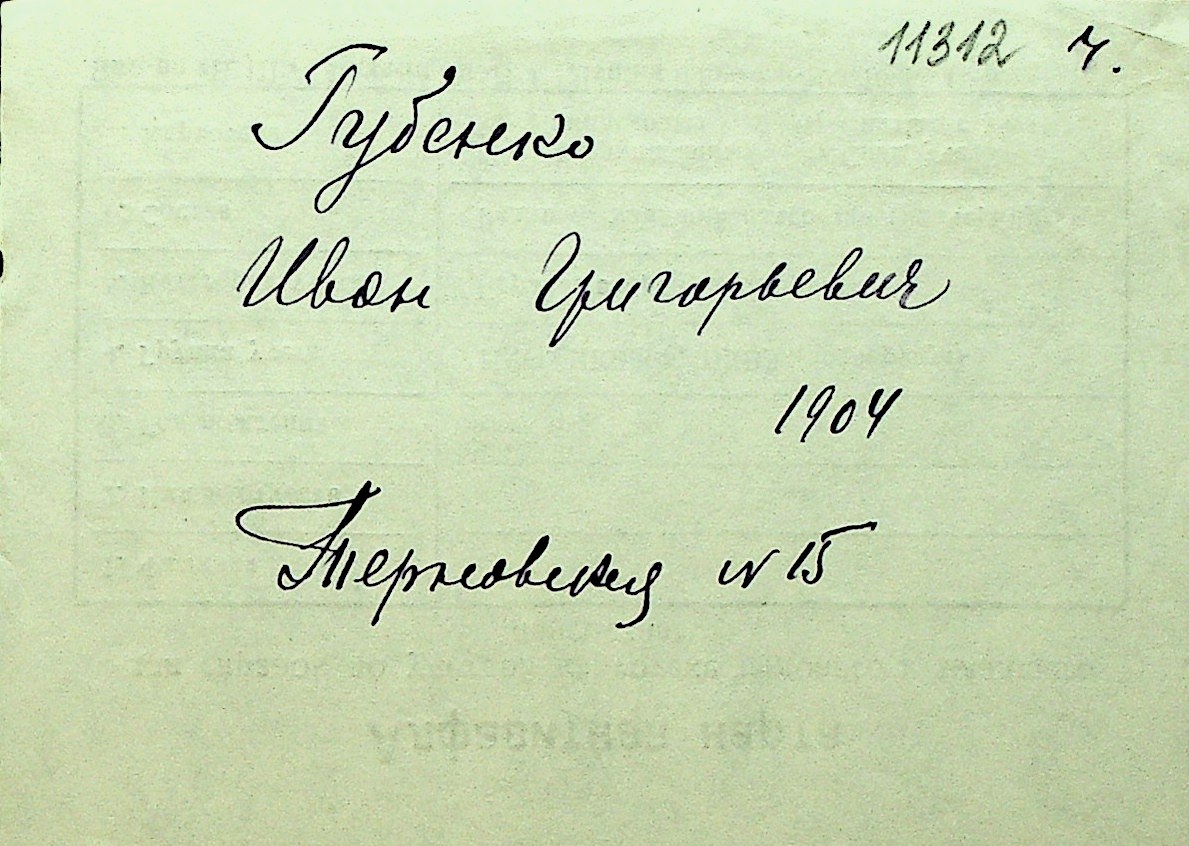 11312 ч.
Губенко
Иван Григорьевич
1904
Терновская № 15